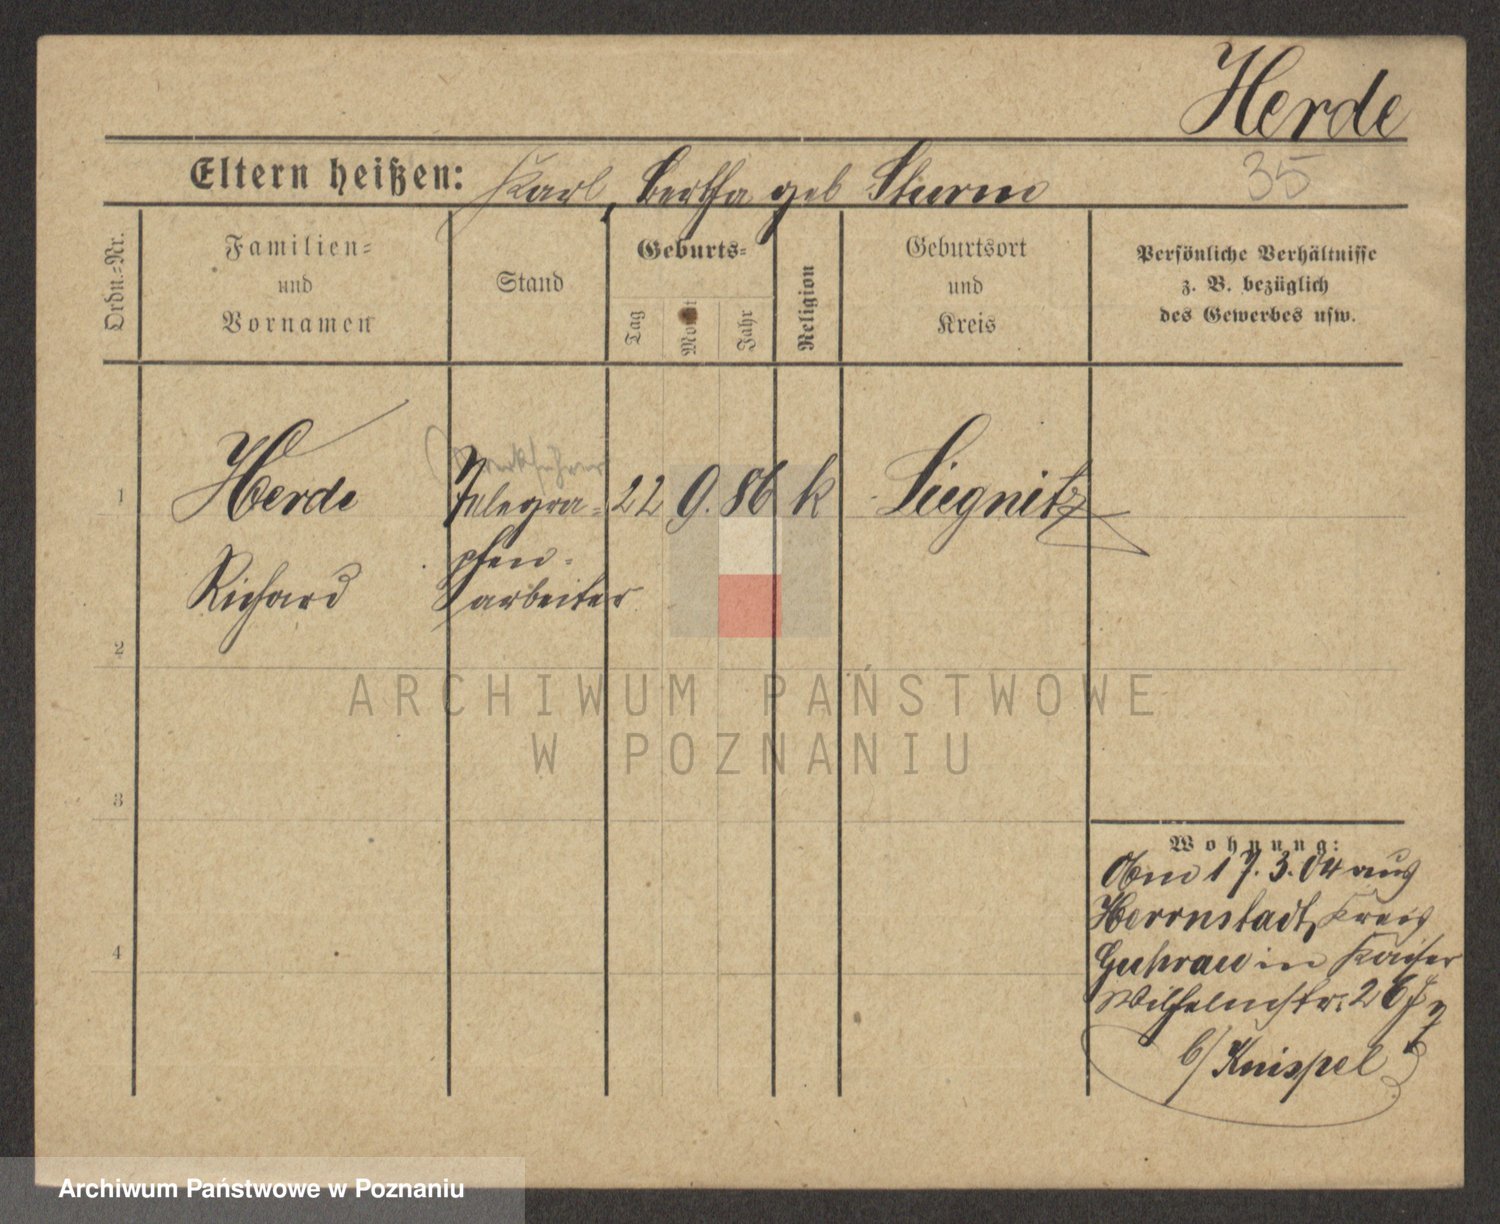 Herde
35
Eltern heißen: Karl, Bertha geb Sturm
Ordn.=Nr.
Familien=
und
Vornamen
Stand
Geburts=
Tag
Monat
Jahr
Religion
Geburtsort
und
Kreis
Persönliche Verhältnisse
z. B. bezüglich
des Gewerbes usw.
Werkführer
1 Herde Telegra= 22 9. 86 k Liegnitz
phen=
Richard arbeiter
2
ARCHIWUM PAŃSTWOWE
W POZNANIU
3
Wohnung:
Am 17.3.04 aus
Herrnstadt, Kreis
4 Guhrau in Kaiser
Wilhelmstr. 26
b/ Knispel
Archiwum Państwowe w Poznaniu